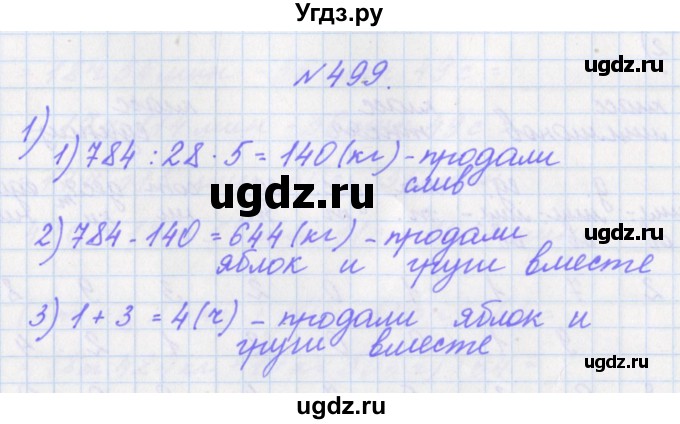 Угдз.ру
№499.
ugdz.ru
1)
1) 784 : 28 · 5 = 140 (кг) - продали
слив
ugdz.ru
ugdz.ru
2) 784 - 140 = 644 (кг) - продали
яблок и груш вместе
3) 1 + 3 = 4 (ч) - продали яблок и
груш вместе
ugdz.ru
ugdz.ru
ugdz.ru